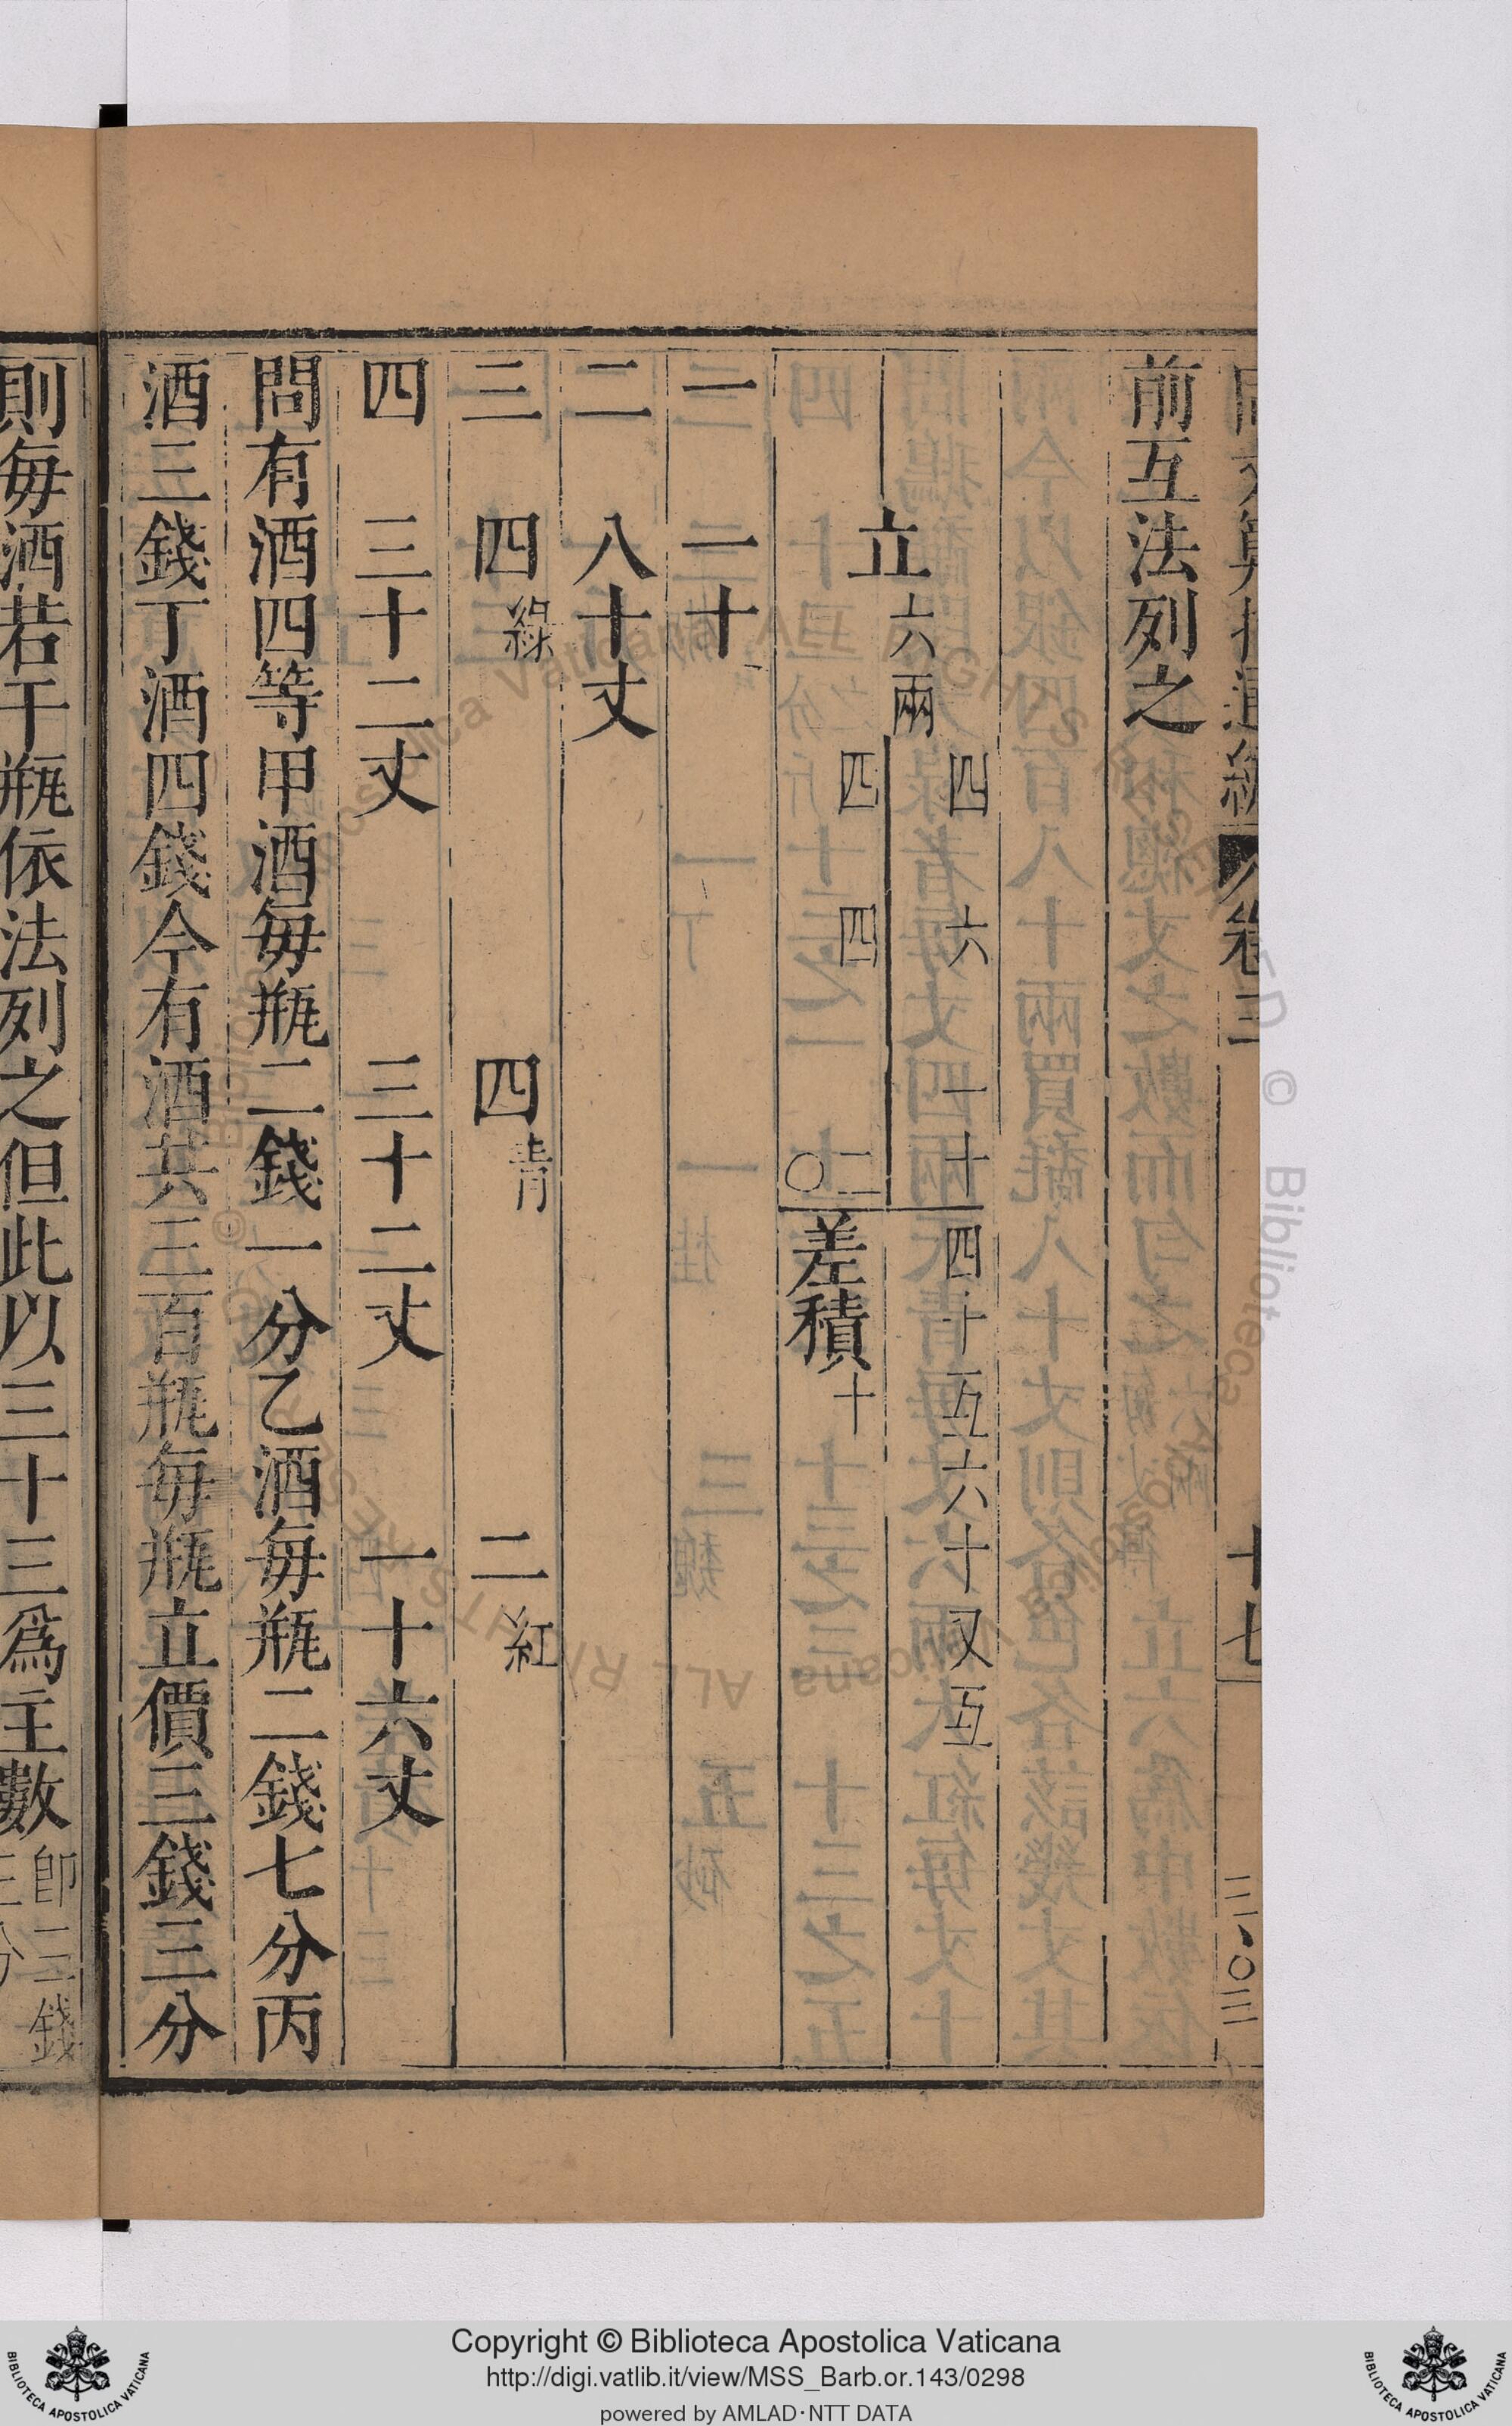 同文算指通編 卷三 十七
前互法列之
四 六 一十 四十互六十又互
立六兩
四 四 二〇 差積十
一 一十
二 八十丈
三 四綠 四青 二紅
四 三十二丈 三十二丈 一十六丈
問有酒四等甲酒每瓶二錢一分乙酒每瓶二錢七分丙
酒三錢丁酒四錢今有酒共三百瓶每瓶立價三錢三分
則每酒若干瓶依法列之但此以三十三爲主數卽三錢
三分
Copyright © Biblioteca Apostolica Vaticana
http://digi.vatlib.it/view/MSS_Barb.or.143/0298
powered by AMLAD·NTT DATA
BIBLIOTECA APOSTOLICA VATICANA
BIBLIOTECA APOSTOLICA VATICANA